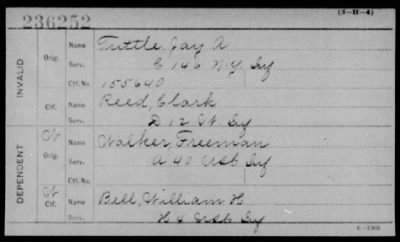 (3-H-4)
236252
INVALID
Orig.
Name Tuttle, Jay A
Serv. C 146 N.Y. Inf
Ctf. No. 155640
Ctf.
Name Reed, Clark
Serv. D 12 Vt. Inf
DEPENDENT
Orig.
Name Walker, Freeman
Serv. A 40 USC Inf
Ctf. No.
Ctf.
Name Bell, William H
Serv. H 4 USC Inf